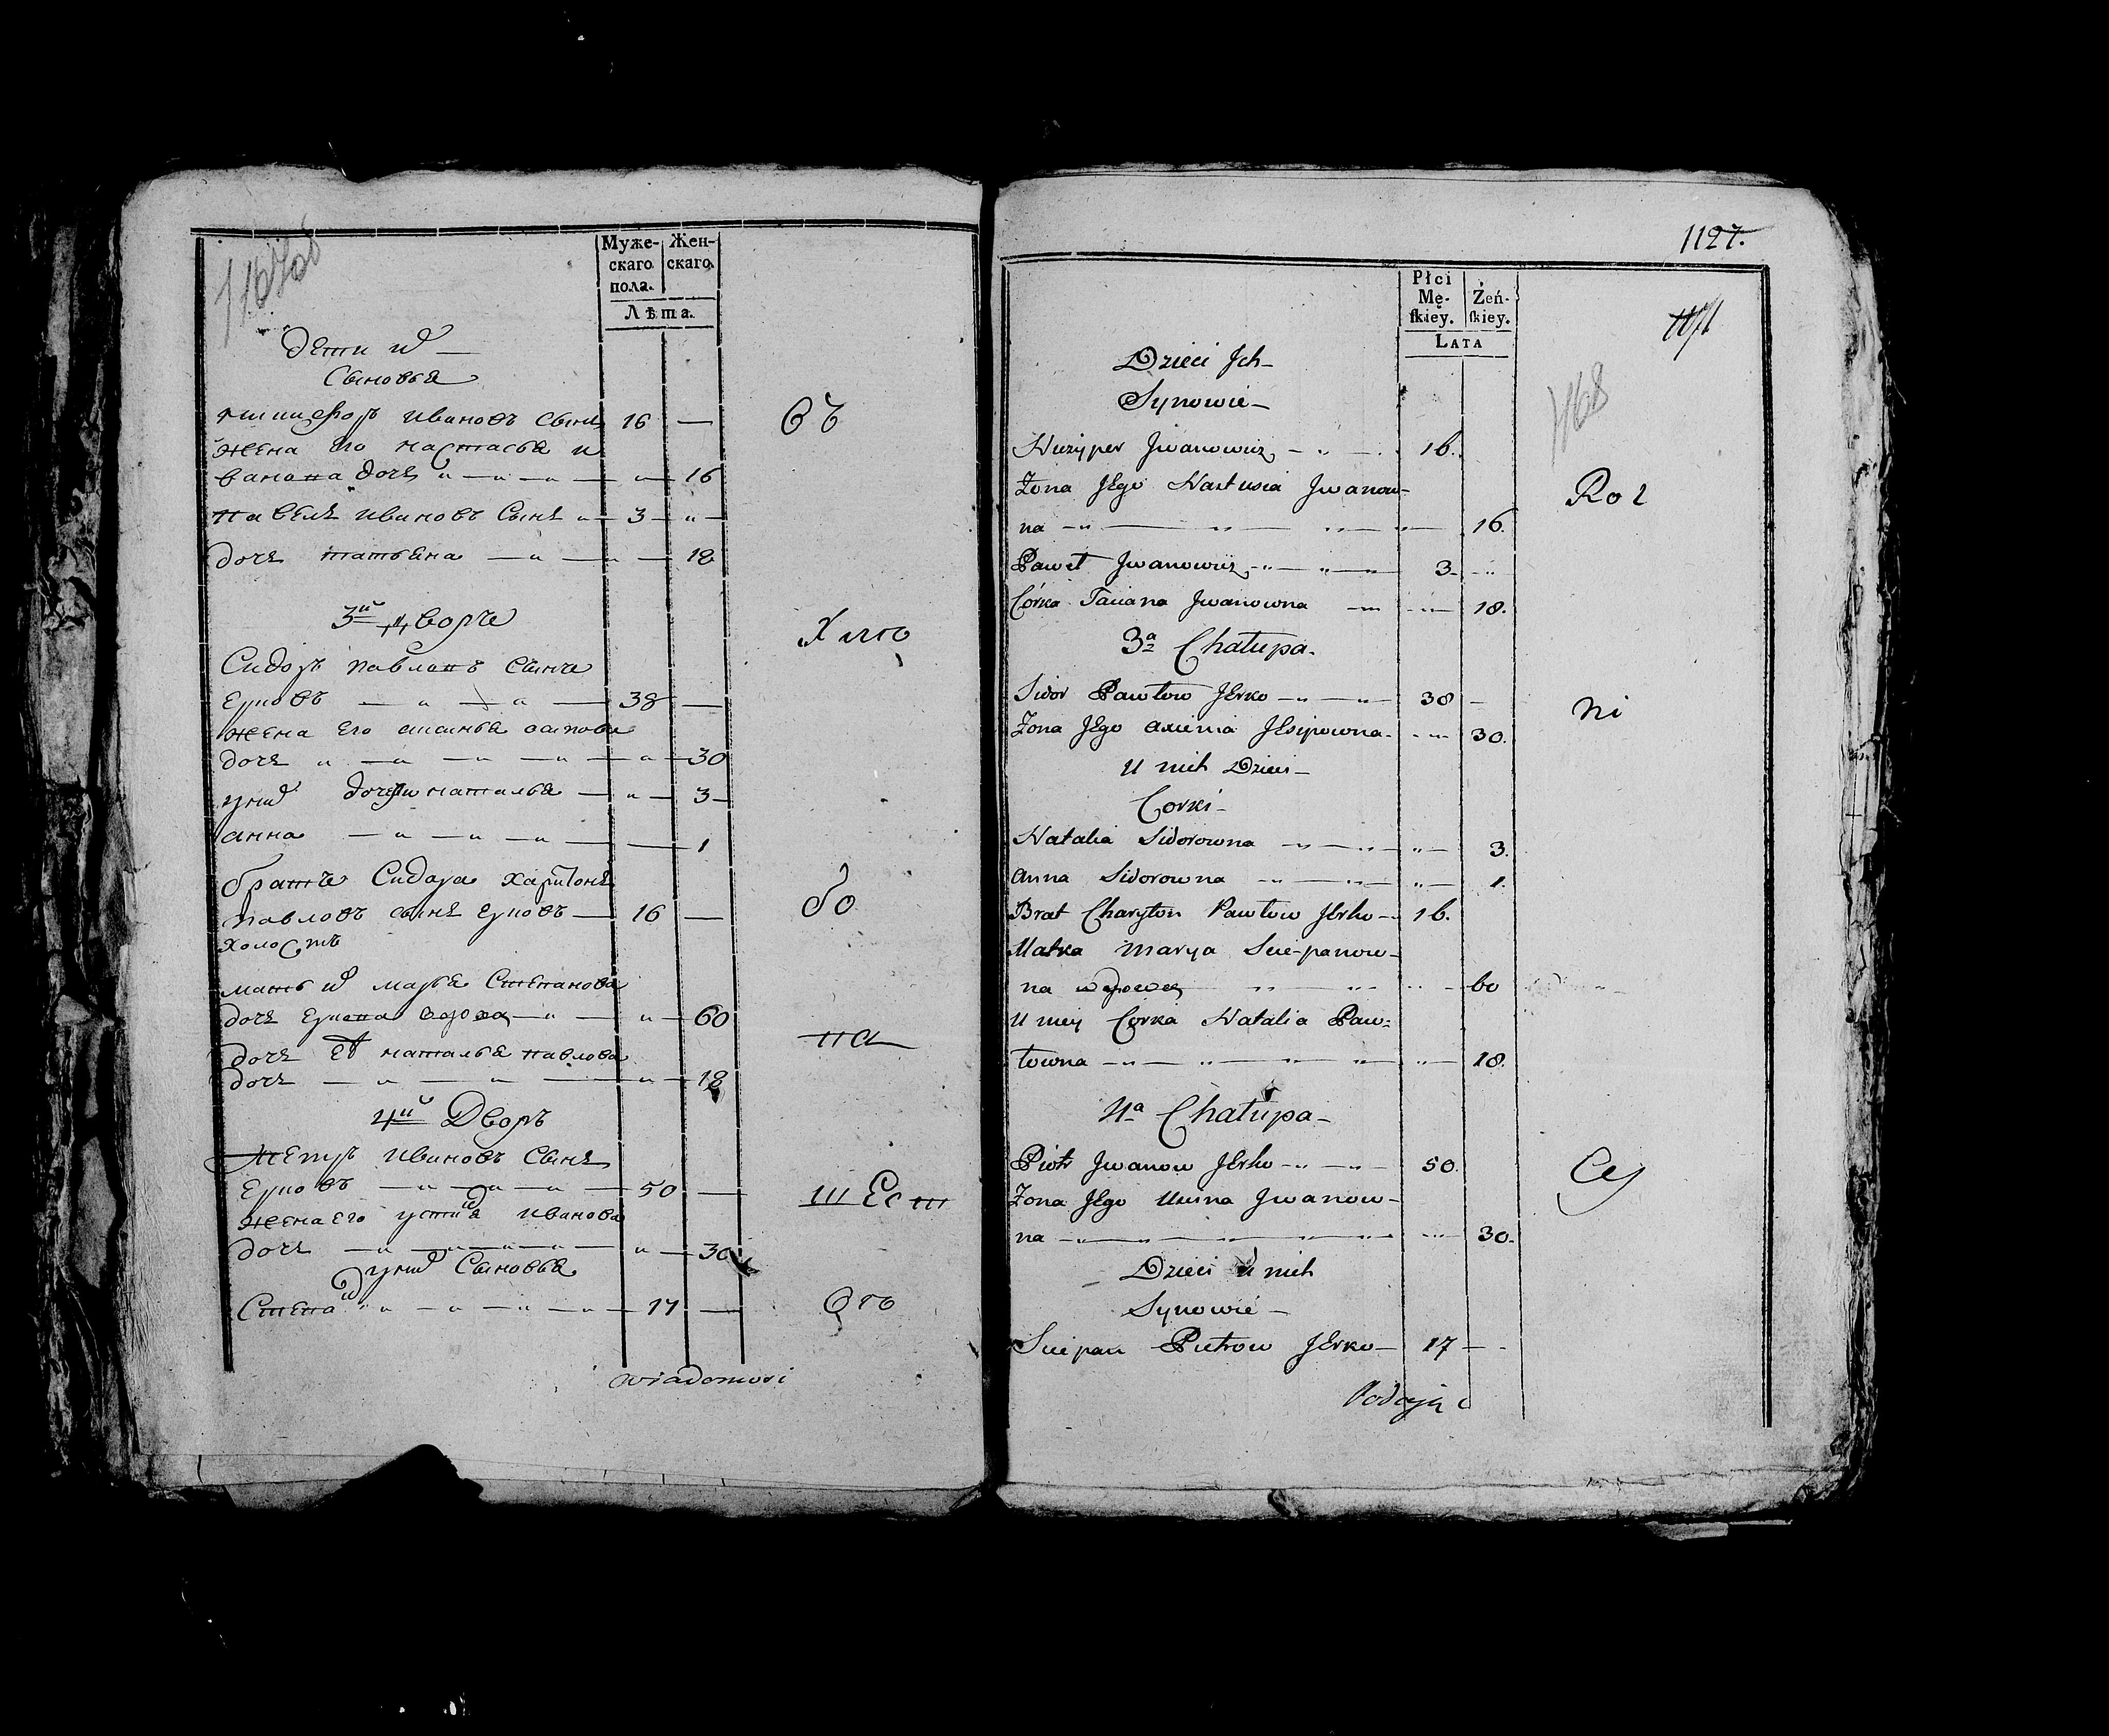 Муже-
скаго
пола.
Жен-
скаго.
Лѣта.
дети их
Сыновья
Ивановъ Сынъ 16
жена его настасья и
ванова дочь 16
Павелъ Ивановъ Сынъ 3
дочь татьяна 18
3й дворъ
Сидоръ павловъ Сынъ
38
жена его осипова
дочь 30
унихъ наталья 3
анна 1
братъ Сидора харитонъ
павловъ сынъ 16
холостъ
мать их марья Степанова
дочь вдова 60
дочь ея наталья павлова
дочь 18
4й Дворъ
Ивановъ Сынъ
50
жена его Иванова
дочь 30
уних Сыновья
Степан 17
Въ
бо
на
шест
ого
wiadomosi
1127.
Płci
Mę-
skiey.
Żeń-
skiey.
LATA
1168
Dzieci Jch
Synowie
Niczyper Jwanowicz 16.
Żona JEgo Nastusia Jwanow-
na 16.
Paweł Jwanowicz 3
Córka Taciana Jwanowna 18.
3a Chałupa.
Sidor Pawłow JErko 38
Żona JEgo Axienia JEsipowna 30.
U nich Dzieci
Corki
Natalia Sidorowna 3.
Anna Sidorowna 1.
Brat Charyton Pawłow JErko 16.
Matka Marya Sciepanow-
na wdowa 60
U niey Corka Natalia Paw-
łowna 18.
4a Chałupa
Piotr Jwanow JErko 50.
Żona JEgo Jwanow-
na 30.
Dzieci U nich
Synowie
Sciepan Pietrow JErko 17
Roz
ni
Cey
Podają c